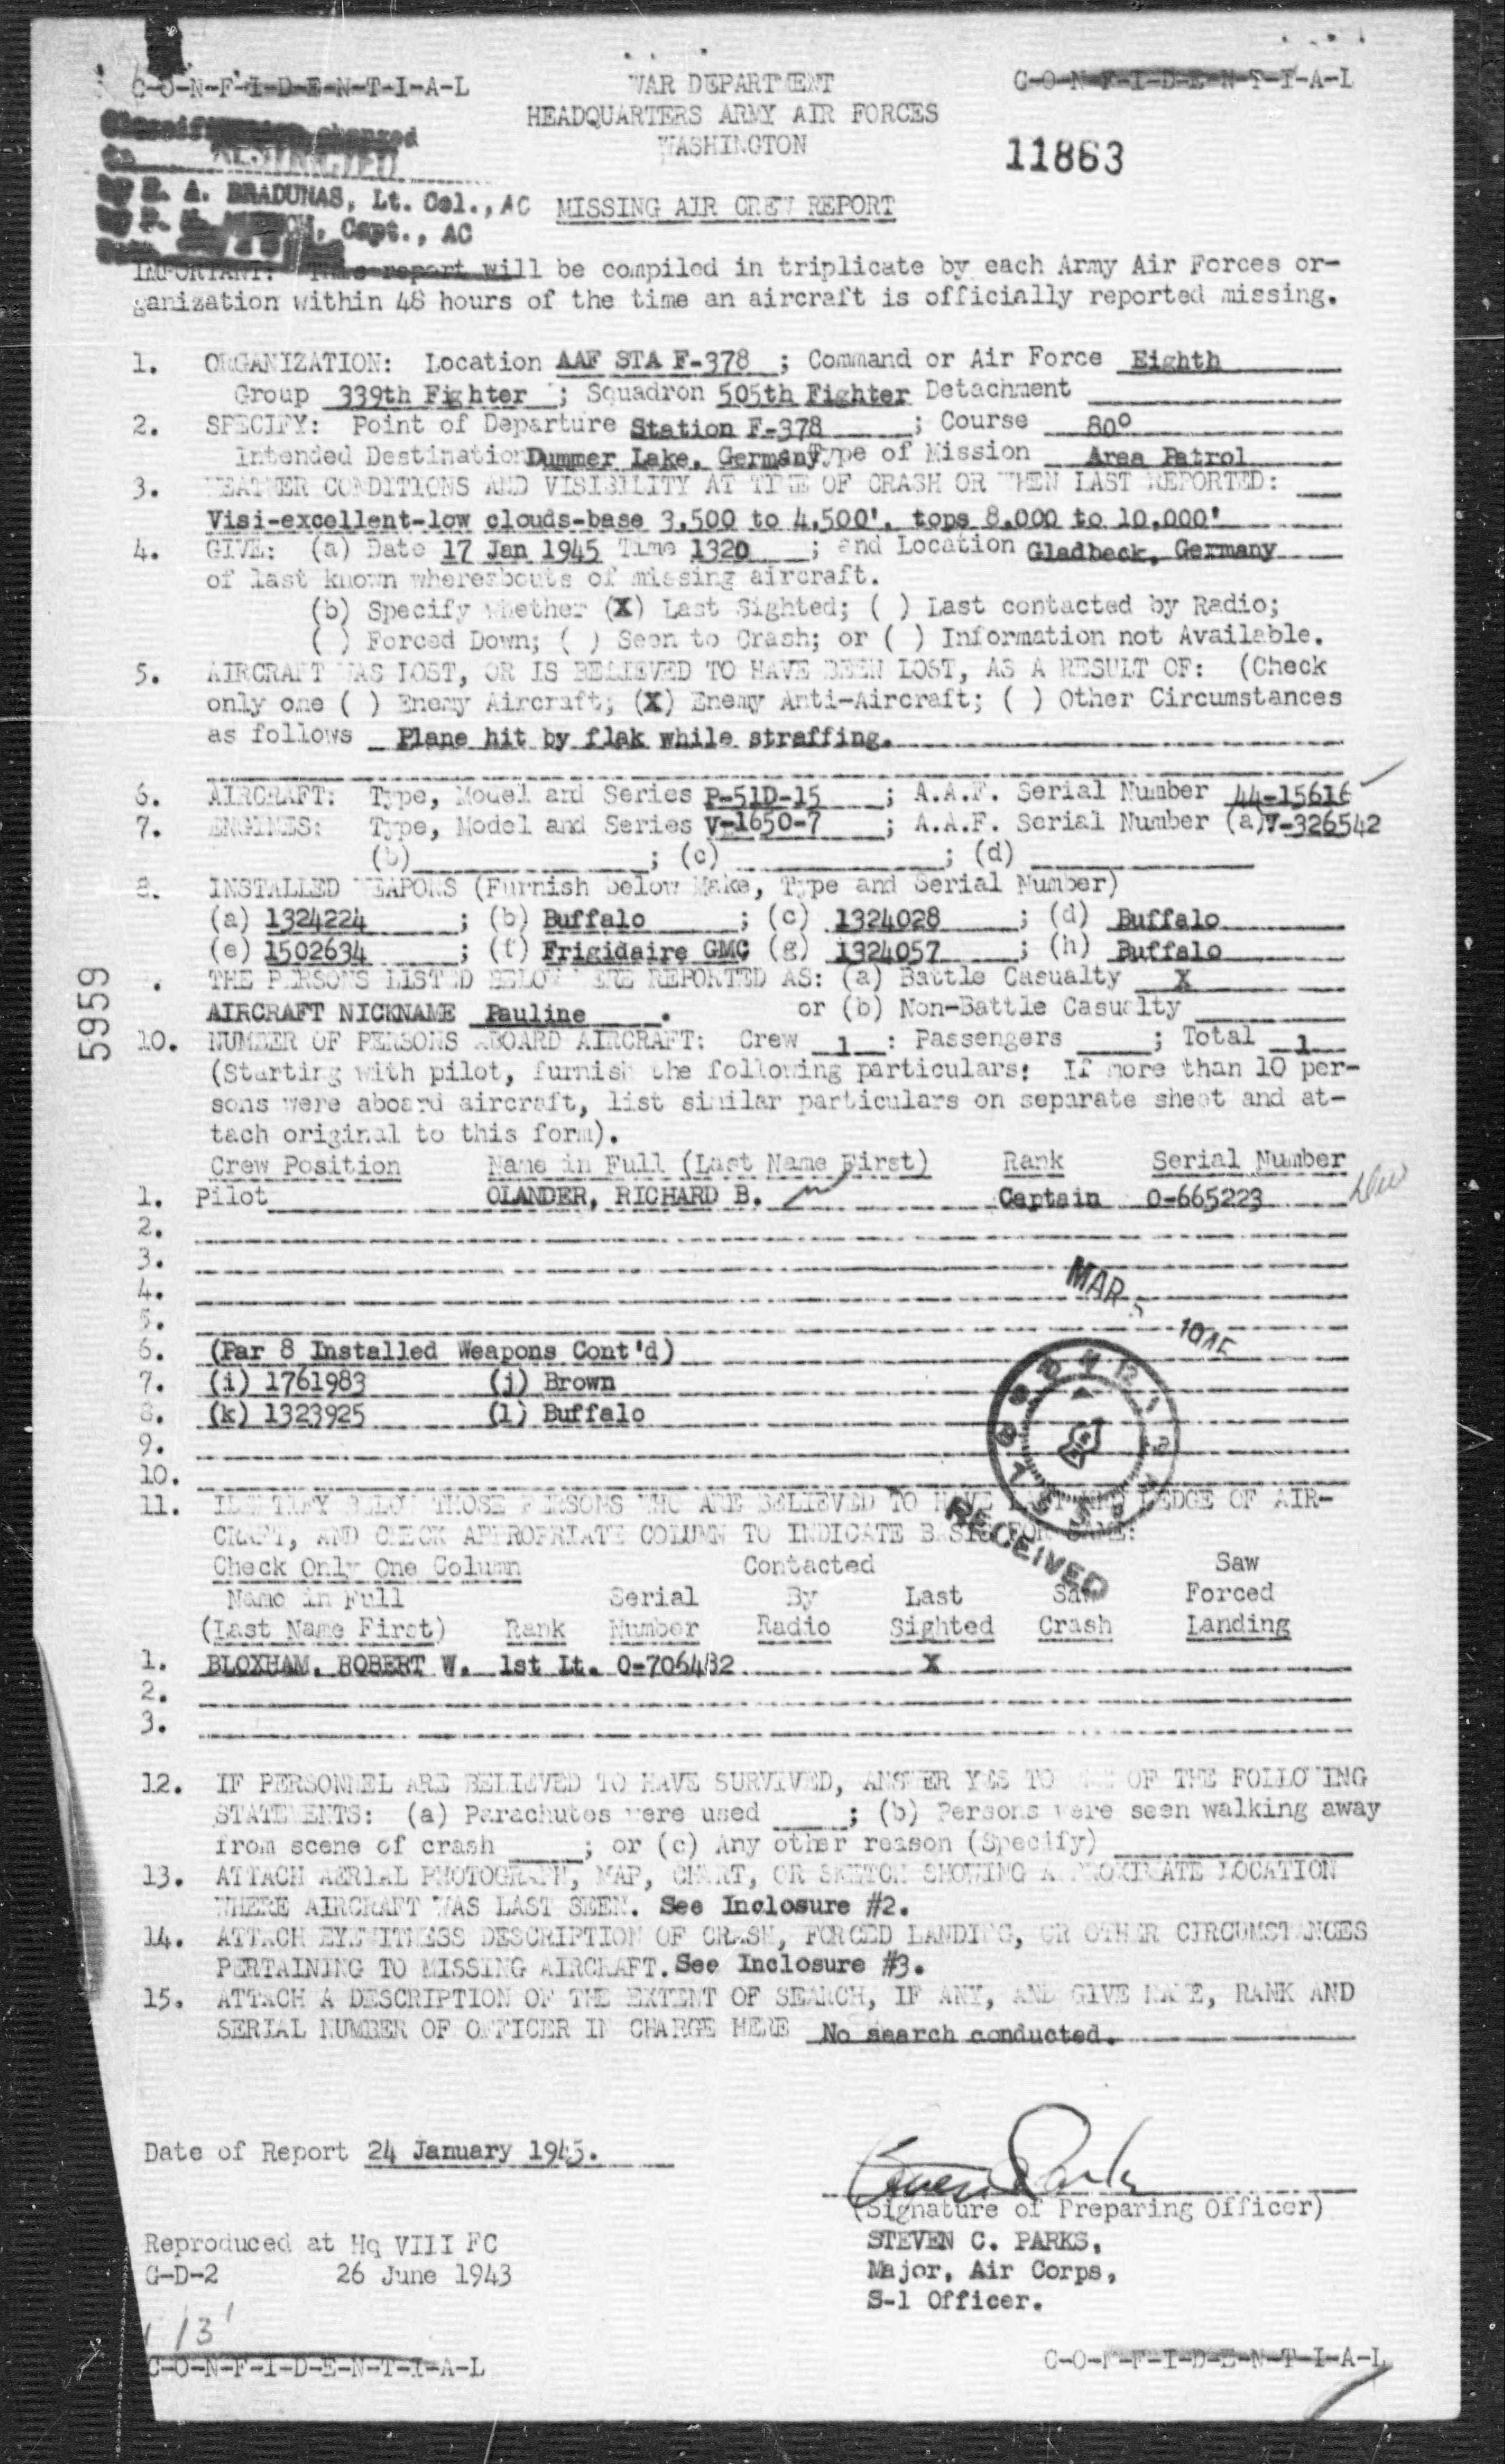 C-O-N-F-I-D-E-N-T-I-A-L
WAR DEPARTMENT
C-O-N-F-I-D-E-N-T-I-A-L
HEADQUARTERS ARMY AIR FORCES
WASHINGTON
11863
Classification changed
to RESTRICTED
by E. A. BRADUNAS, Lt. Col., AC
Capt., AC
MISSING AIR CREW REPORT
IMPORTANT: This report will be compiled in triplicate by each Army Air Forces or-
ganization within 48 hours of the time an aircraft is officially reported missing.
1. ORGANIZATION: Location AAF STA F-378 ; Command or Air Force Eighth
Group 339th Fighter ; Squadron 505th Fighter Detachment
2. SPECIFY: Point of Departure Station F-378 ; Course 80°
Intended Destination Dummer Lake, Germany Type of Mission Area Patrol
3. WEATHER CONDITIONS AND VISIBILITY AT TIME OF CRASH OR WHEN LAST REPORTED:
Visi-excellent-low clouds-base 3,500 to 4,500', tops 8,000 to 10,000'
4. GIVE: (a) Date 17 Jan 1945 Time 1320 ; and Location Gladbeck, Germany
of last known whereabouts of missing aircraft.
(b) Specify whether (X) Last Sighted; ( ) Last contacted by Radio;
( ) Forced Down; ( ) Seen to Crash; or ( ) Information not Available.
5. AIRCRAFT WAS LOST, OR IS BELIEVED TO HAVE BEEN LOST, AS A RESULT OF: (Check
only one ( ) Enemy Aircraft; (X) Enemy Anti-Aircraft; ( ) Other Circumstances
as follows Plane hit by flak while straffing.
6. AIRCRAFT: Type, Model and Series P-51D-15 ; A.A.F. Serial Number 44-15616
7. ENGINES: Type, Model and Series V-1650-7 ; A.A.F. Serial Number (a) V-326542
(b) ; (c) ; (d)
8. INSTALLED WEAPONS (Furnish below Make, Type and Serial Number)
(a) 1324224 ; (b) Buffalo ; (c) 1324028 ; (d) Buffalo
(e) 1502634 ; (f) Frigidaire GMC (g) 1324057 ; (h) Buffalo
. THE PERSONS LISTED BELOW WERE REPORTED AS: (a) Battle Casualty X
AIRCRAFT NICKNAME Pauline . or (b) Non-Battle Casualty
5959
10. NUMBER OF PERSONS ABOARD AIRCRAFT: Crew 1 : Passengers ; Total 1
(Starting with pilot, furnish the following particulars: If more than 10 per-
sons were aboard aircraft, list similar particulars on separate sheet and at-
tach original to this form).
Crew Position Name in Full (Last Name First) Rank Serial Number
1. Pilot OLANDER, RICHARD B. Captain O-665223
2.
3.
4.
5.
MAR 5
6. (Par 8 Installed Weapons Cont'd)
7. (i) 1761983 (j) Brown
8. (k) 1323925 (l) Buffalo
9.
10.
RECEIVED
11. IDENTIFY BELOW THOSE PERSONS WHO ARE BELIEVED TO HAVE LAST KNOWLEDGE OF AIR-
CRAFT, AND CHECK APPROPRIATE COLUMN TO INDICATE BASIS FOR SAME:
Check Only One Column Contacted Saw
Name in Full Serial By Last Saw Forced
(Last Name First) Rank Number Radio Sighted Crash Landing
1. BLOXHAM, ROBERT W. 1st Lt. O-706482 X
2.
3.
12. IF PERSONNEL ARE BELIEVED TO HAVE SURVIVED, ANSWER YES TO ONE OF THE FOLLOWING
STATEMENTS: (a) Parachutes were used ; (b) Persons were seen walking away
from scene of crash ; or (c) Any other reason (Specify)
13. ATTACH AERIAL PHOTOGRAPH, MAP, CHART, OR SKETCH SHOWING APPROXIMATE LOCATION
WHERE AIRCRAFT WAS LAST SEEN. See Inclosure #2.
14. ATTACH EYEWITNESS DESCRIPTION OF CRASH, FORCED LANDING, OR OTHER CIRCUMSTANCES
PERTAINING TO MISSING AIRCRAFT. See Inclosure #3.
15. ATTACH A DESCRIPTION OF THE EXTENT OF SEARCH, IF ANY, AND GIVE NAME, RANK AND
SERIAL NUMBER OF OFFICER IN CHARGE HERE No search conducted.
Date of Report 24 January 1945.
(Signature of Preparing Officer)
Reproduced at Hq VIII FC
STEVEN C. PARKS,
G-D-2 26 June 1943
Major, Air Corps,
S-1 Officer.
C-O-N-F-I-D-E-N-T-I-A-L
C-O-N-F-I-D-E-N-T-I-A-L